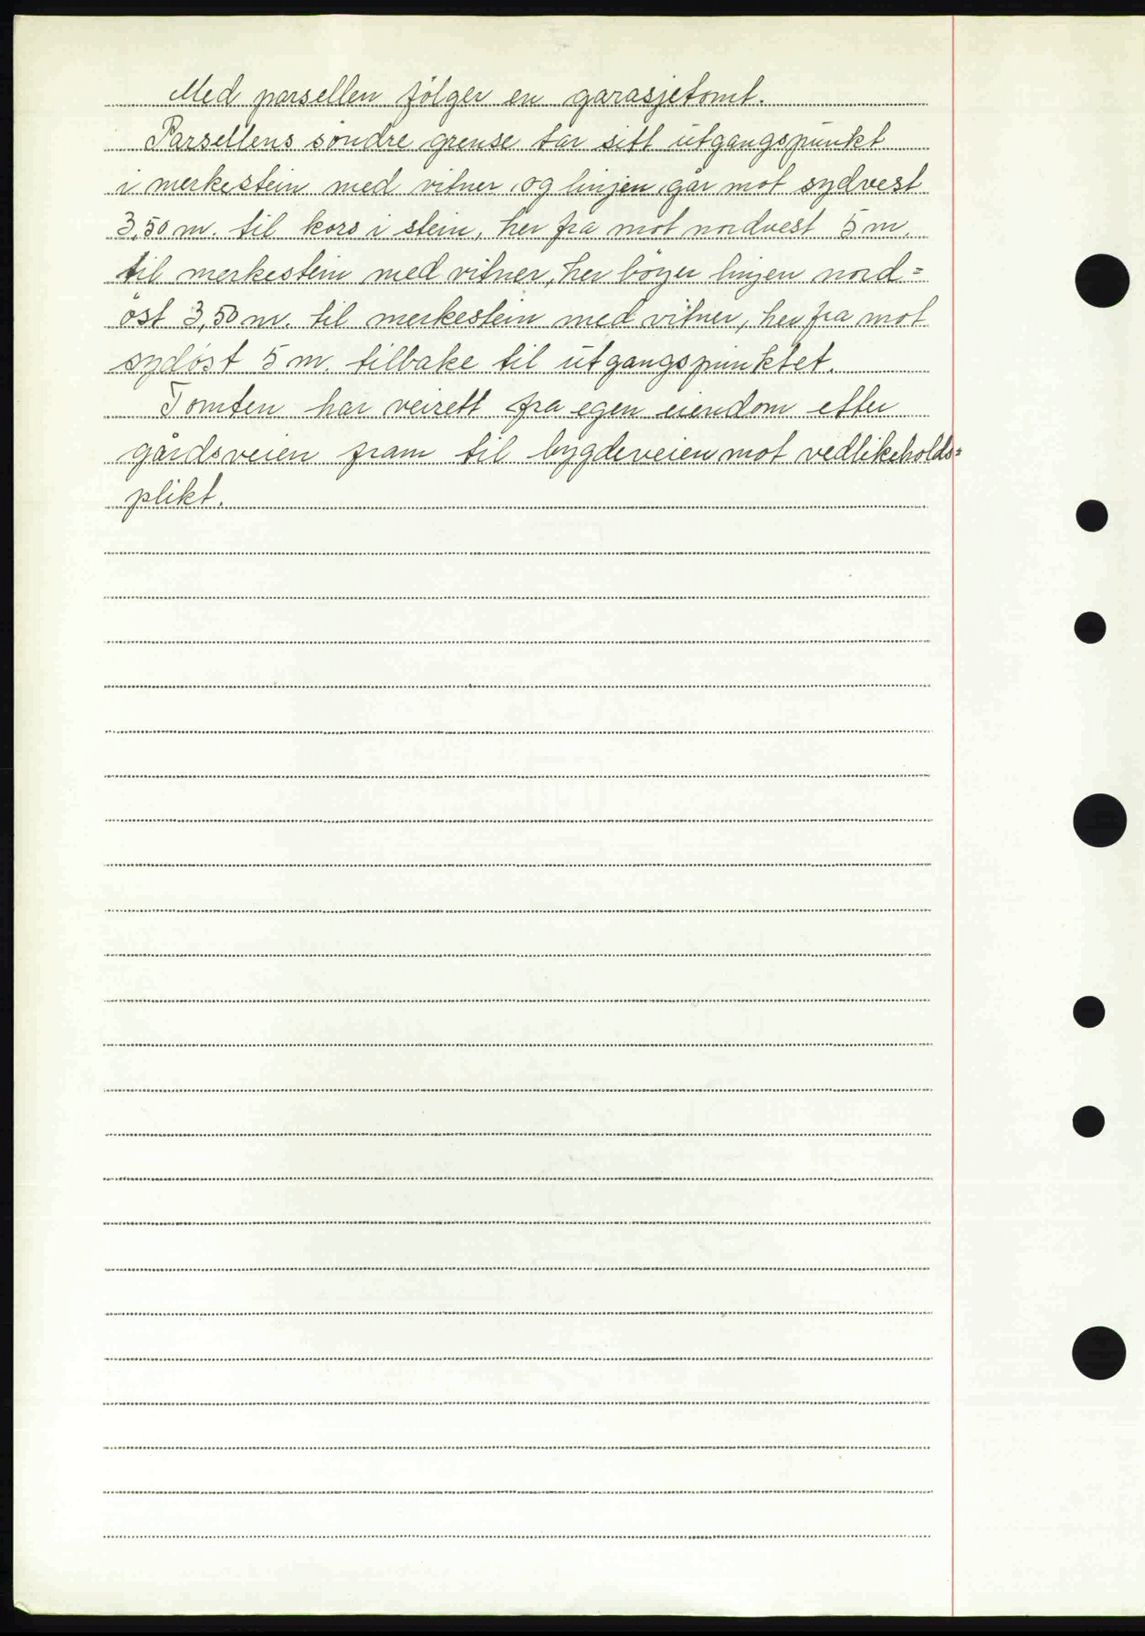 Med parsellen følger en garasjetomt.
Parsellens søndre grense tar sitt utgangspunkt
i merkestein med vitner, og linjen går mot sydvest
3,50 m. til kors i stein, her fra mot nordvest 5 m.
til merkestein med vitner, her bøyer linjen nord=
öst 3,50 m. til merkestein med vitner, her fra mot
sydöst 5 m. tilbake til utgangspunktet.
Tomten har veirett fra egen eiendom efter
gårdsveien fram til bygdeveien mot vedlikeholds=
plikt.